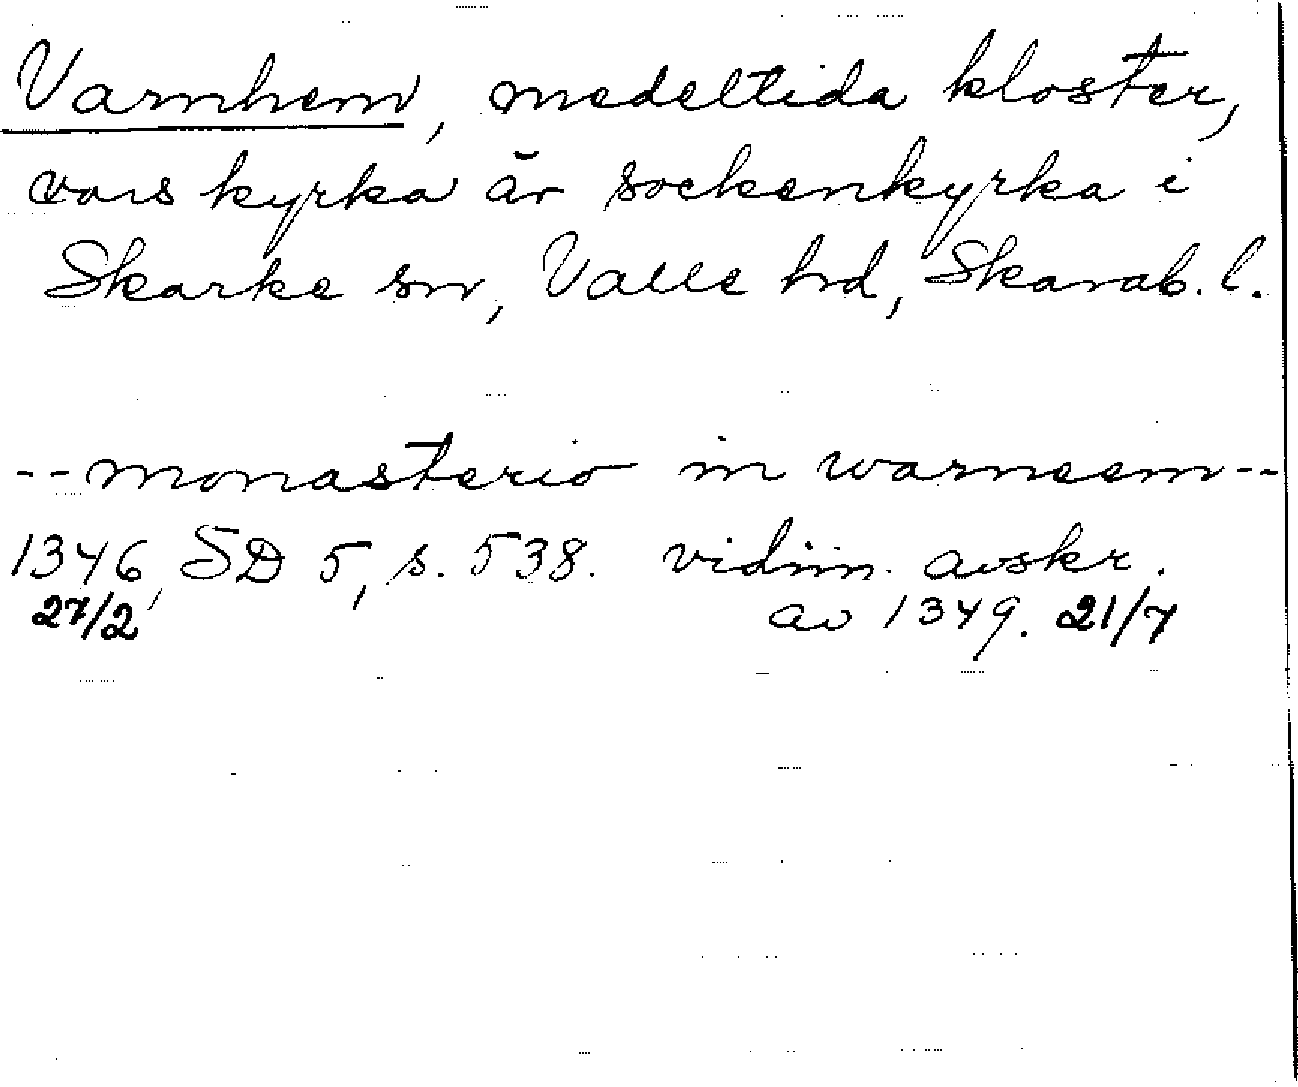 Varnhem, medeltida kloster,
vars kyrka är sockenkyrka i
Skarke sn, Valle hd, Skarab. l.
-- monasterio in warneem --
1346, SD 5, s. 538. vidim. avskr.
27/2 av 1349. 21/7